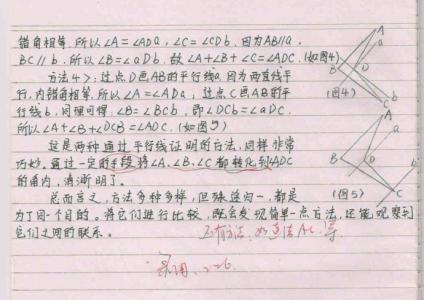 错角相等,所以∠A=∠ADa,∠C=∠CDb.因为AB//a,
BC//b,所以∠B=∠aDb,故∠A+∠B+∠C=∠ADC.(如图4)
方法4>:过点D画AB的平行线a.因为两直线平
行,内错角相等,所以∠A=∠ADa,过点C画AB的平
行线b,同理可得:∠B=∠BCb,即∠DCb=∠aDC.
所以∠A+∠B+∠DCB=∠ADC.(如图5)
这是两种通过平行线证明的方法,同样非常
巧妙,通过一定的手段将∠A、∠B、∠C都转化到∠ADC
的角内,清晰明了。
总而言之,方法多种多样,但殊途同一,都是
为了同一个目的。将它们进行比较,既会发现简单一点方法,还能观察到
它们之间的联系。
还有方法,如连结AC,等
录用
A
a
B
D
b
C
(图4)
A
a
B
D
b
C
(图5)